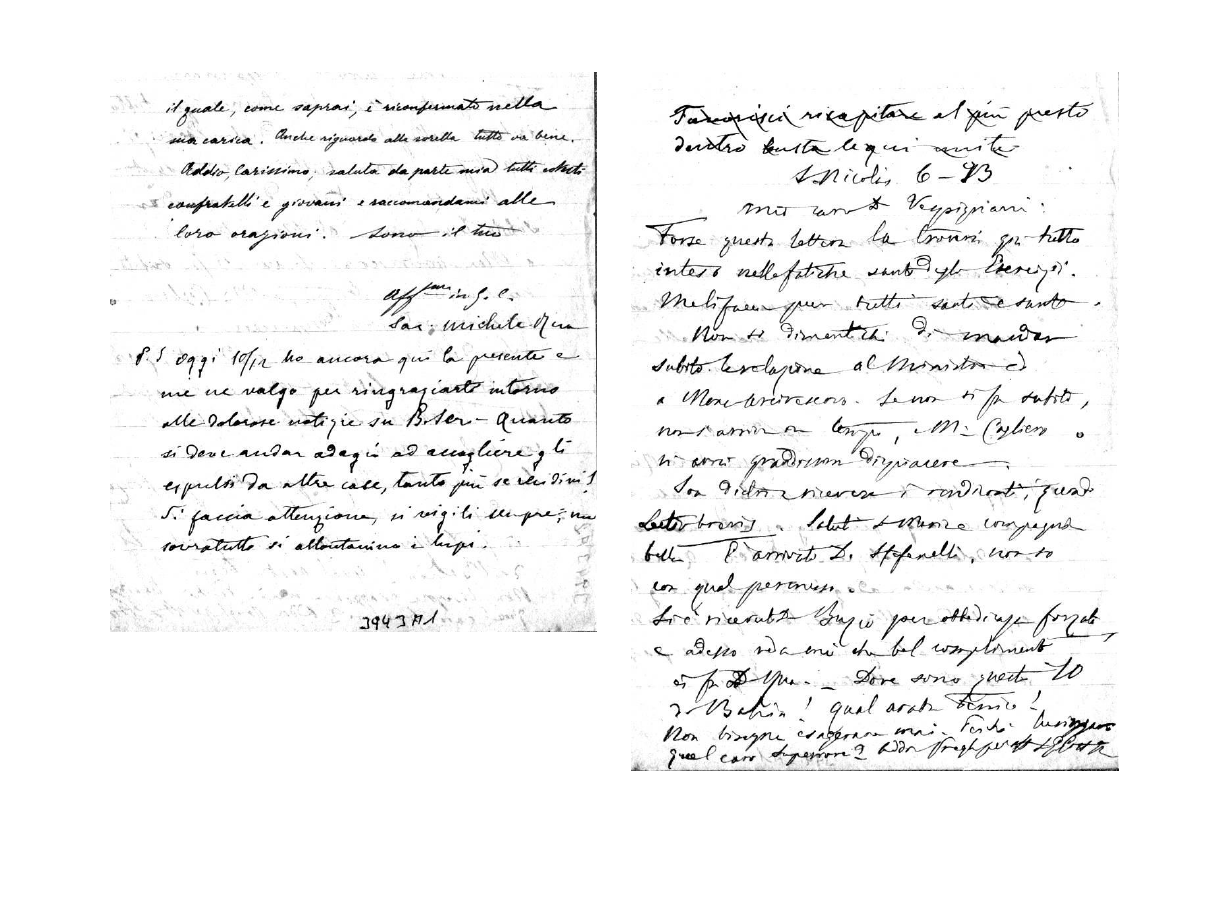 il quale, come saprai, è riconfermato nella
sua carica. Anche riguardo alle sorella tutto va bene.
Addio, Carissimo, saluta da parte mia tutti
confratelli e giovani e raccomandami alle
loro orazioni. Sono il tuo
Aff in G. C.
Sac. Michele Rua
P. S. Oggi 10/12 ho ancora qui la presente e
me ne valgo per ringraziarti intorno
alle dolorose notizie su - Quanto
si deve andar adagio ad accogliere gli
espulsi da altre case, tanto più se recidivi!
Si faccia attenzione, si vigili sempre, ma
sovratutto si allontanino i lupi.
3943A1
Favorisci ricapitare al più presto
dentro busta le qui unite
S. Nicolás 6-93
Mio caro D. Vespignani:
Forse questa lettera la troverà già tutto
inteso nelle fatiche sante degli Esercizi.
Me li faccia per tutti santi e sante.
Non si dimentichi di mandar
subito la relazione al Ministro ed
a Mons. Arcivescovo. Se non si fa subito,
non s'arriva in tempo, e M. Cagliero
ne avrà grandissimo dispiacere
Son dietro a ricevere i rendiconti, quindi
brevis. Saluti compagnia
bella È arrivato D. Stefenelli, non so
con qual permesso.
Si è ricevuto D. per obbedienza forzata
e adesso veda mò che bel complimento
ci fa D. Rua. - Dove sono questi 10
di Bahia! qual
Non bisogna esagerare mai. Perchè
quel caro Superiore?